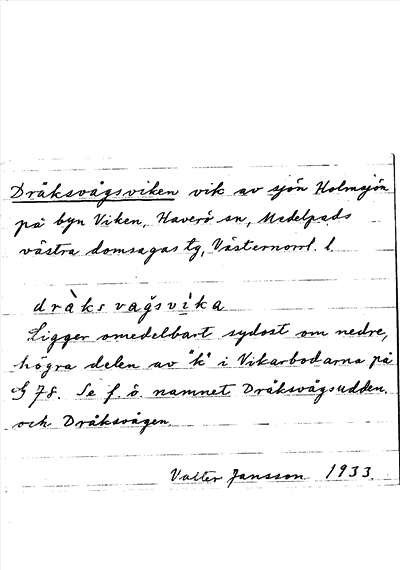 Dråksvågsviken vik av sjön Holmsjön
på byn Viken, Haverö sn, Medelpads
västra domsagas tg, Västernorrl. l.
dràksvagsvika
Ligger omedelbart sydost om nedre,
högra delen av "k" i Vikarbodarna på
G 78. Se f. ö. namnet Dråksvågsudden.
och Dråksvågen.
Valter Jansson 1933.